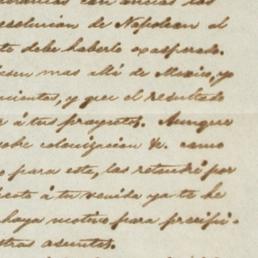 con ancias las
resolucion de Napoleon el
te debe haberlo exasperado.
mas allá de Mexico, yo
cientes, y que el resultado
r á tus proyectos. Aunque
sobre colonizacion &. como
o para este, las retendré por
á tu venida ya te he
haya motivo para precipi-
stros asuntos.